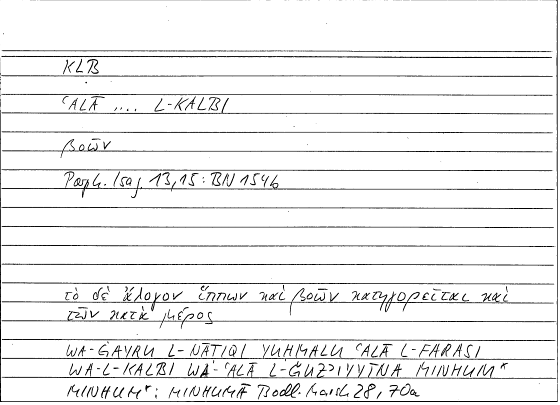 KLB
ʿALĀ .... L-KALBI
βοῶν
Porph. Isag. 13,15 : BN 154b
τὸ δὲ ἄλογον ἵππων καὶ βοῶν κατηγορεῖται καὶ
τῶν κατὰ μέρος
WA-ĠAYRU L-NĀṬIQI YUḤMALU ʿALĀ L-FARASI
WA-L-KALBI WA-ʿALĀ L-ǦUZʾIYYĪNA MINHUM*
MINHUM*: MINHUMĀ Bodl. Marsh 28, 70a